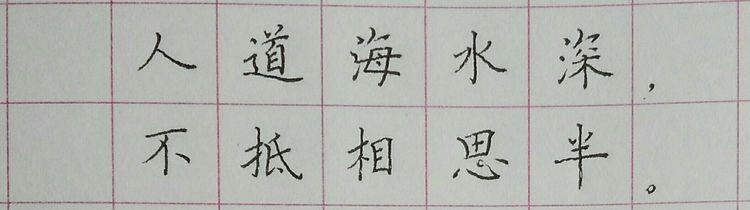 人道海水深，
不抵相思半。